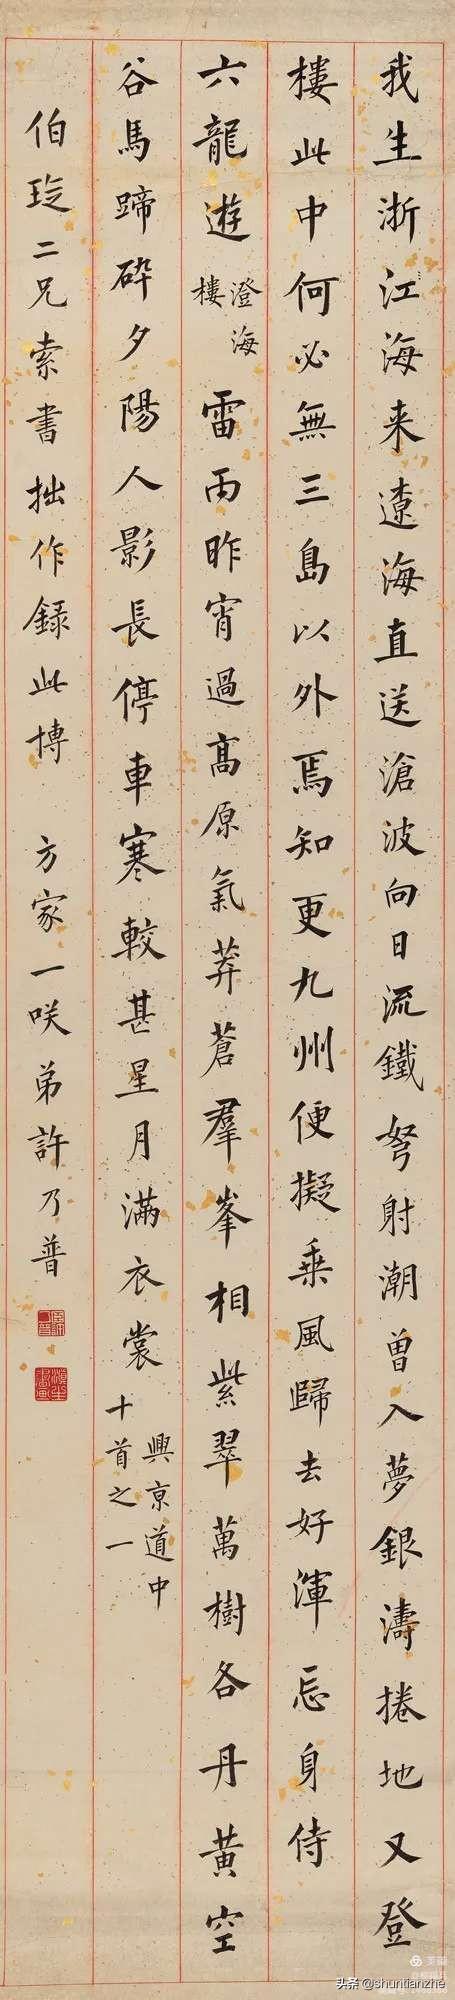 我生浙江海来遼海直送滄波向日流鐵弩射潮曾入夢銀濤捲地又登
樓此中何必無三島以外焉知更九州便擬乘風歸去好渾忘身侍
六龍遊澄海樓雷雨昨宵過高原氣莽蒼羣峯相紫翠萬樹各丹黃空
谷馬蹄碎夕陽人影長停車寒較甚星月滿衣裳興京道中十首之一
伯玹二兄索書拙作錄此博 方家一咲弟許乃普
头条@shuntianzhe